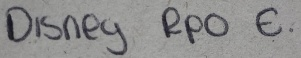 Disney RPO €.